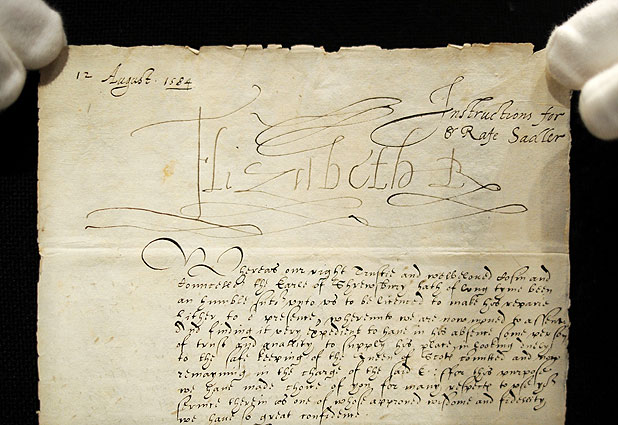 12 August 1584
Instructions for
Sr Rafe Sadler
Elizabeth R
Whereas our right Trustie and welbeloved Cosin and
Councellor the Earle of Shrewsbury hath of long tyme been
an humble suter unto us to be licenced to make his repaire
hither to or presence, whereunto we are now moved to assent
And finding it very expedient to have in his absence some person
of trust and quallity to supply his place in looking
to the safe keeping of the Queen of Scots comitted and now
remayning in the charge of the said E: for this purpose
we have made choice of you, for many respects to use yor
service therein as one of whose approved wisdome and fidelity
we have so great confidence